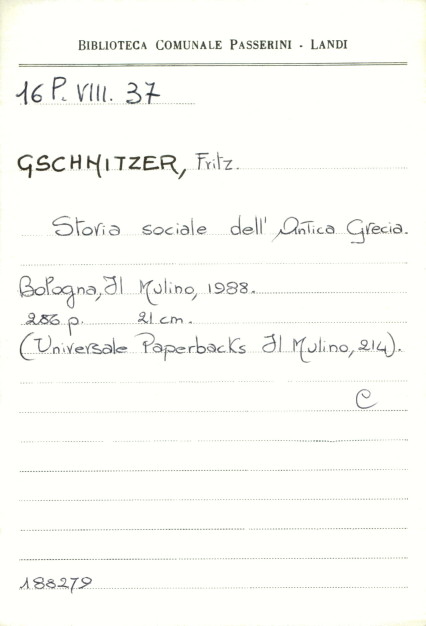 BIBLIOTECA COMUNALE PASSERINI - LANDI
16 P. VIII. 37
GSCHNITZER, Fritz.
Storia sociale dell'Antica Grecia.
Bologna, Il Mulino, 1988.
286 p. 21 cm.
(Universale Paperbacks Il Mulino, 214).
C
188279